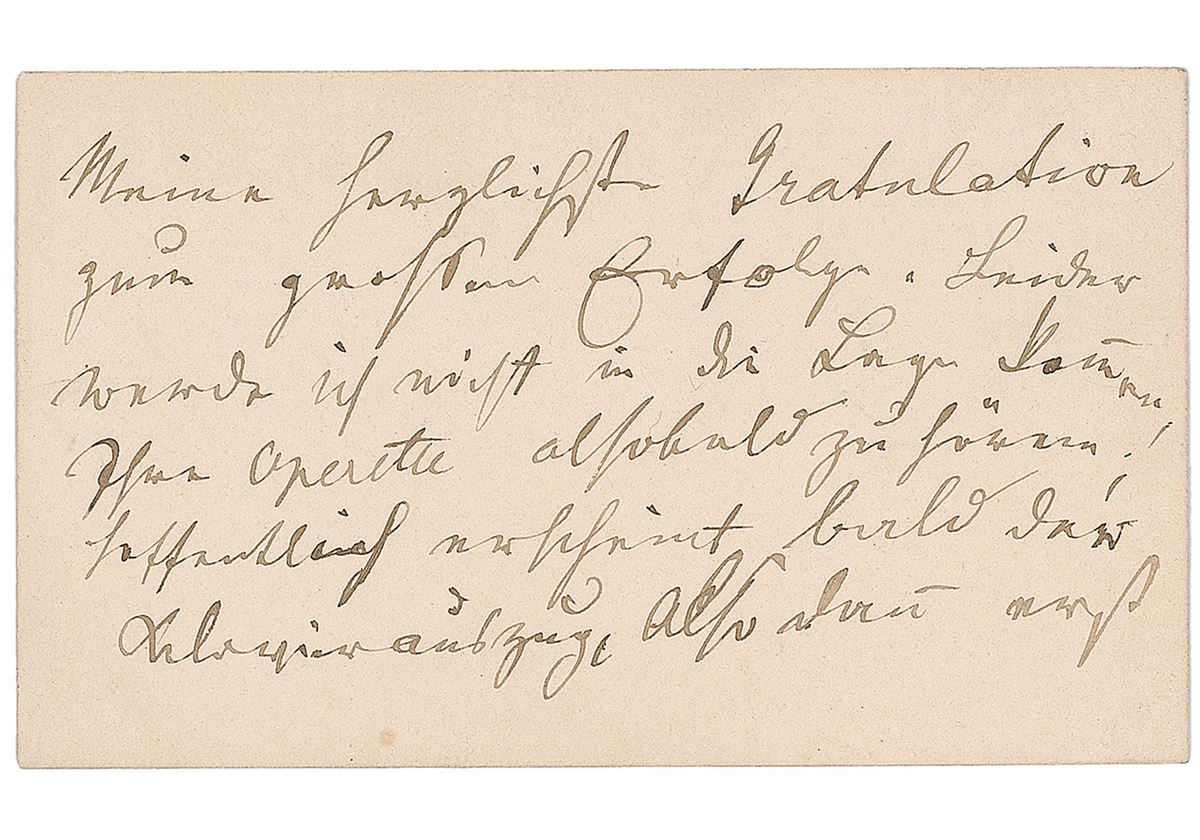 Meine herzlichste Gratulation
zum großen Erfolge. Leider
werde ich nicht in die Lage kom̅en
Ihre Operette alsobald zu hören!
hoffentlich erscheint bald der
Klavierauszug, Also dan̅ erst